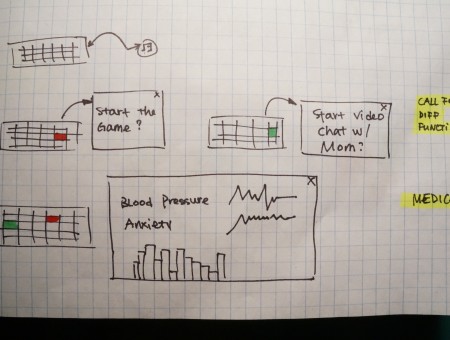 x
Start the
Game?
x
Start video
Chat w/
Mom?
CALL FO
DIFF
FUNCTI
x
Blood Pressure
Anxiety
MEDIC